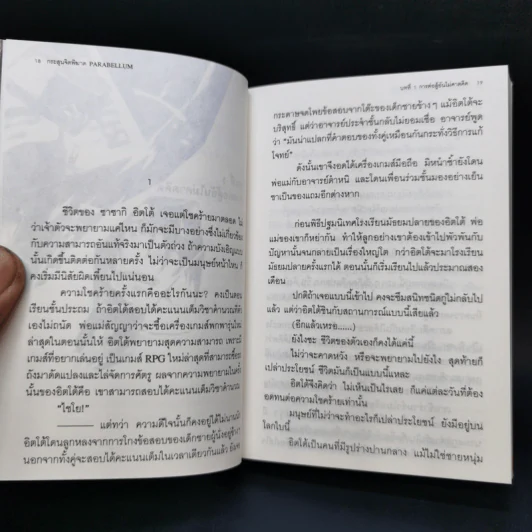 18 กระสุนจิตพิฆาต PARABELLUM
1
ชีวิตของ ซาซากิ อิตโต้ เจอแต่โชคร้ายมาตลอด ไม่
ว่าเจ้าตัวจะพยายามแค่ไหน ก็มักจะมีบางอย่างซึ่งไม่เกี่ยว
กับความสามารถอันแท้จริงมาเป็นตัวถ่วง ถ้าความบังเอิญ
นั้นเกิดขึ้นติดต่อกันหลายครั้ง ไม่ว่าจะเป็นมนุษย์หน้าไหน ก็
คงเริ่มมีนิสัยผิดเพี้ยนไปแน่นอน
ความโชคร้ายครั้งแรกคืออะไรกันนะ? คงเป็นตอน
เรียนชั้นประถม ถ้าอิตโต้สอบได้คะแนนเต็มวิชาคำนวณที่ตัว
เองไม่ถนัด พ่อแม่สัญญาว่าจะซื้อเครื่องเกมส์พกพารุ่นใหม่
ล่าสุดในตอนนั้นให้ อิตโต้พยายามสุดความสามารถ เพราะมี
เกมส์ที่อยากเล่นอยู่ เป็นเกมส์ RPG ใหม่ล่าสุดที่สามารถเชื่อม
ถึงมาดัดแปลงและไล่จัดการศัตรู ผลจากความพยายามในครั้ง
นั้นของอิตโต้คือ เขาสามารถสอบได้คะแนนเต็มวิชาคำนวณ
“ไชโย!”
—— แต่ทว่า ความดีใจนั้นก็คงอยู่ได้ไม่นานนัก
อิตโต้โดนลูกหลงจากการโกงข้อสอบของเด็กชายผู้นั่งอยู่ข้าง
นอกจากทั้งคู่จะสอบได้คะแนนเต็มในเวลาเดียวกันแล้ว ยัง
บทที่ 1 การต่อสู้อันไม่คาดคิด 19
กระดาษจดโพยข้อสอบจากโต๊ะของเด็กชายข้างๆ แม้อิตโต้จะ
บริสุทธิ์ แต่ว่าอาจารย์ประจำชั้นกลับไม่ยอมเชื่อ อาจารย์พูด
ว่า “มันน่าแปลกที่คำตอบของทั้งคู่เหมือนกันกระทั่งวิธีการแก้
โจทย์”
ดังนั้นเขาจึงอดได้เครื่องเกมส์มือถือ มิหนำซ้ำยังโดน
พ่อแม่กับอาจารย์ตำหนิ และโดนเพื่อนร่วมชั้นมองอย่างเย็น
ชาเป็นของแถมอีกต่างหาก
ก่อนพิธีปฐมนิเทศโรงเรียนมัธยมปลายของอิตโต้ พ่อ
แม่ของเขาก็หย่ากัน ทำให้ลูกอย่างเขาต้องเข้าไปพัวพันกับ
ปัญหานั้นจนกลายเป็นเรื่องใหญ่โต กว่าอิตโต้จะมาโรงเรียน
มัธยมปลายครั้งแรกได้ ตอนนั้นก็เริ่มเรียนไปแล้วประมาณสอง
เดือน
ปกติถ้าเจอแบบนี้เข้าไป คงจะซึมสนิทชนิดกู่ไม่กลับไป
แล้ว แต่ว่าอิตโต้ชินกับสถานการณ์แบบนี้เสียแล้ว
(อีกแล้วเหรอ......)
ยังไงซะ ชีวิตของตัวเองก็คงได้แค่นี้
ไม่ว่าจะคาดหวัง หรือจะพยายามไปยังไง สุดท้ายก็
เปล่าประโยชน์ ชีวิตมันก็เป็นแบบนี้แหละ
อิตโต้จึงคิดว่า ไม่เห็นเป็นไรเลย ก็แค่แต่ละวันที่ต้อง
อดทนต่อความโชคร้ายเท่านั้น
มนุษย์ที่ไม่ว่าจะทำอะไรก็เปล่าประโยชน์ ยังมีอยู่บน
โลกใบนี้
อิตโต้เป็นคนที่มีรูปร่างปานกลาง แม้ไม่ใช่ชายหนุ่ม